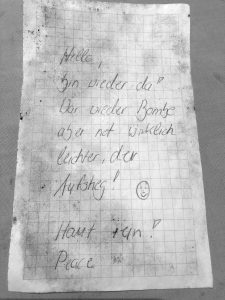 Hello,
bin wieder da!
War wieder Bombe
aber net wirklich
leichter, der
Aufstieg!
Haut rein!
Peace